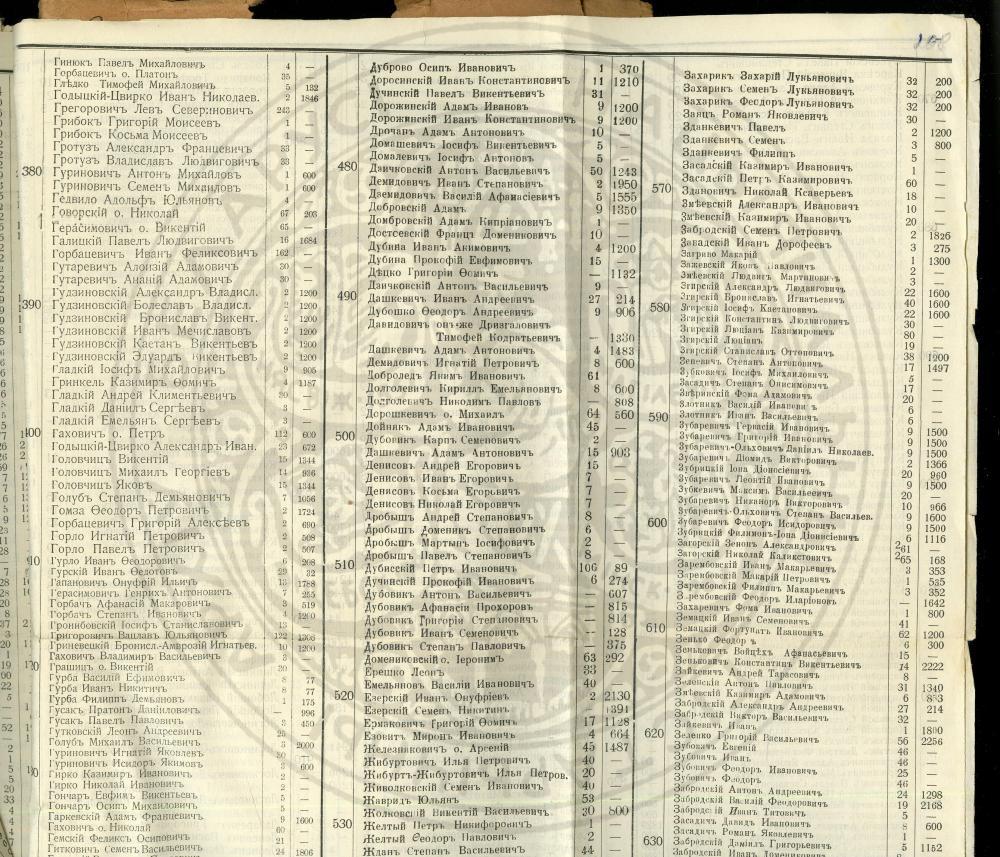 Гинюкъ Павелъ Михайловичъ 4 —
Горбацевичъ о. Платонъ 35 —
Глѣдко Тимофей Михайловичъ 5 132
Годыцкій-Цвирко Иванъ Николаев. 2 1846
Грегоровичъ Левъ Севериновичъ 243 —
Грибокъ Григорій Моисеевъ 1 —
Грибокъ Косьма Моисеевъ 1 —
Гротузъ Александръ Францевичъ 33 —
Гротузъ Владиславъ Людвиговичъ 33 —
380 Гуриновичъ Антонъ Михайловъ 1 600
Гуриновичъ Семенъ Михаиловъ 1 600
Гедвило Адольфъ Юльяновъ 4 —
Говорскій о. Николай 67 203
Герасимовичъ о. Викентій 65 —
Галицкій Павелъ Людвиговичъ 16 1684
Горбацевичъ Иванъ Феликсовичъ 162 —
Гутаревичъ Алоизій Адамовичъ 30 —
Гутаревичъ Ананій Адамовичъ 30 —
Гудзиновскій Александръ Владисл. 2 1200
390 Гудзиновскій Болеславъ Владисл. 2 1200
Гудзиновскій Брониславъ Викент. 2 1200
Гудзиновскій Иванъ Мечиславовъ 2 1200
Гудзиновскій Каетанъ Викентьевъ 2 1200
Гудзиновскій Эдуардъ Викентьевъ 2 1200
Гладкій Іосифъ Михайловичъ 9 905
Гринкель Казимиръ Ѳомичъ 4 1187
Гладкій Андрей Климентьевичъ 30 —
Гладкій Даніилъ Сергѣевъ 3 —
Гладкій Емельянъ Сергѣевъ 3 —
400 Гаховичъ о. Петръ 112 600
Годыцкій-Цвирко Александръ Иван. 23 672
Головчицъ Викентій 15 1344
Головчицъ Михаилъ Георгіевъ 14 936
Головчицъ Яковъ 15 1344
Голубъ Степанъ Демьяновичъ 7 1056
Гомза Ѳеодоръ Петровичъ 2 1724
Горбацевичъ Григорій Алексѣевъ 2 690
Горло Игнатій Петровичъ 2 508
Горло Павелъ Петровичъ 2 507
Гурло Иванъ Ѳеодоровичъ 6 208
Гурскій Иванъ Ѳедотовъ 29 32
Гапановичъ Онуфрій Ильичъ 13 1788
Герасимовичъ Генрихъ Антоновичъ 7 255
Горбачъ Афанасій Макаровичъ 3 519
Горбачъ Степанъ Ивановичъ 4 1200
Гронибовскій Іосифъ Станиславовичъ 13 —
Григоровичъ Вацлавъ Юльяновичъ 122 1308
Гриневецкій Брониcл.-Амврозій Игнатьев. 10 1200
Гаховичъ Владимиръ Васильевичъ 3 —
Грашицъ о. Викентій 30 —
Гурба Василій Ефимовичъ 8 77
Гурба Иванъ Никитичъ 8 77
Гурба Филиппъ Демьяновъ 1 175
Гусакъ Платонъ Даниловичъ — 996
Гусакъ Павелъ Павловичъ 3 450
Гутковскій Леонъ Андреевичъ 25 —
Голубъ Михаилъ Васильевичъ 3 2000
Гуриновичъ Игнатій Яковлевъ 30 —
Гуриновичъ Исидоръ Якимовъ 3 600
Гирко Казимиръ Ивановичъ 2 —
Гирко Николай Ивановичъ 2 —
Гончаръ Евфимъ Викентьевъ 5 —
Гончаръ Осипъ Михайловичъ 5 —
Гаркевскій Адамъ Францевичъ 9 1600
Гаховичъ о. Николай 60 —
Гемскій Феликсъ Осиповичъ 21 —
Гитковичъ Семенъ Васильевичъ 24 1806
Дуброво Осипъ Ивановичъ 1 370
Доросинскій Иванъ Константиновичъ 11 1210
Дучинскій Павелъ Викентьевичъ 31 —
Дорожинскій Адамъ Ивановъ 9 1200
Дорожинскій Иванъ Константиновичъ 9 1200
Дрочанъ Адамъ Антоновичъ 10 —
Домашевичъ Іосифъ Викентьевичъ 5 —
Домалевичъ Іосифъ Антоновъ 5 —
480 Дзичковскій Антонъ Васильевичъ 50 1243
Демидовичъ Иванъ Степановичъ 2 1950
Дземидовичъ Василій Афанасіевичъ 5 1555
Добровскій Адамъ 9 1350
Домбровскій Адамъ Кипріановичъ 1 —
Достсевскій Францъ Доминиковичъ 10 —
Дубина Иванъ Акимовичъ 4 1200
Дубина Прокофій Евфимовичъ 15 —
Дѣцко Григорій Ѳомичъ — 1132
Дзичковскій Антонъ Васильевичъ 9 —
490 Дашкевичъ Иванъ Андреевичъ 27 214
Дубошко Ѳеодоръ Андреевичъ 9 906
Давидовичъ онъ-же Дризгаловичъ
Тимофей Кодратьевичъ — 1330
Дашкевичъ Адамъ Антоновичъ 4 1483
Демидовичъ Игнатій Петровичъ 8 600
Доброледъ Якимъ Ивановичъ 61 —
Долголевичъ Кириллъ Емельяновичъ 8 600
Долголевичъ Никодимъ Павловъ — 808
Дорошкевичъ о. Михаилъ 64 560
Дойнякъ Адамъ Ивановичъ 45 —
500 Дубовикъ Карпъ Семеновичъ 2 —
Дашкевичъ Адамъ Антоновичъ 15 903
Денисовъ Андрей Егоровичъ 15 —
Денисовъ Иванъ Егоровичъ 7 —
Денисовъ Косьма Егоровичъ 7 —
Денисовъ Николай Егоровичъ 7 —
Дробышъ Андрей Степановичъ 8 —
Дробышъ Доменикъ Степановичъ 6 —
Дробышъ Мартынъ Іосифовичъ 2 —
Дробышъ Павелъ Степановичъ 8 —
510 Дубисскій Петръ Ивановичъ 106 89
Дучинскій Прокофій Ивановичъ 6 274
Дубовикъ Антонъ Васильевичъ — 607
Дубовикъ Афанасіи Прохоровъ — 815
Дубовикъ Григоріи Степановичъ — 814
Дубовикъ Иванъ Семеновичъ — 128
Дубовикъ Степанъ Павловичъ — 375
Домениковскій о. Іеронимъ 63 292
Ерешко Леонъ 33 —
Емельяновъ Василіи Ивановичъ 40 —
520 Езерскій Иванъ Онуфріевъ 2 2130
Езерскій Семенъ Никитинъ — 1391
Ермаковичъ Григорій Ѳомичъ 17 1128
Езовитъ Миронъ Ивановичъ 4 664
Железняковичъ о. Арсеній 45 1487
Жибуртовичъ Илья Петровичъ 40 —
Жибуртъ-Жибуртовичъ Илья Петров. 20 —
Живолковскій Семенъ Ивановичъ 40 —
Жавридъ Юльянъ 53 —
Жолковскій Викентій Васильевичъ 30 800
530 Желтый Петръ Никифоровичъ 1 —
Желтый Ѳеодоръ Павловичъ 2 —
Жданъ Степанъ Васильевичъ 44 —
Захарикъ Захарій Лукьяновичъ 32 200
Захарикъ Семенъ Лукьяновичъ 32 200
Захарикъ Феодоръ Лукьяновичъ 32 200
Заяцъ Романъ Яковлевичъ 30 —
Зданкевичъ Павелъ 2 1200
Зданкевичъ Семенъ 3 800
Зданкевичъ Филиппъ 5 —
Засадскій Казимиръ Ивановичъ 1 —
570 Засадскій Петръ Казимировичъ 60 —
Здановичъ Николай Ксаверьевъ 18 —
Змѣевскій Александръ Ивановичъ 10 —
Змѣевскій Казимиръ Ивановичъ 20 —
Забродскій Семенъ Петровичъ 2 1826
Завадскій Иванъ Дорофеевъ 3 275
Загриво Макарій 1 1300
Зажевскій Яковъ Павловичъ 2 —
Змѣевскій Людвигъ Мартиновичъ 3 —
Згирскій Александръ Людвиговичъ 22 1600
Згирскій Брониславъ Игнатьевичъ 40 1600
580 Згирскій Іосифъ Каетановичъ 22 1600
Згирскій Константинъ Людвиговичъ 30 —
Згирскій Люціанъ Казимировичъ 80 —
Згирскій Люціанъ 19 —
Згирскій Станиславъ Оттоновичъ 38 1200
Зеневичъ Степанъ Антоновичъ 17 1497
Зубковичъ Іосифъ Михаиловичъ 5 —
Засадичъ Степанъ Онисимовичъ 17 —
Звѣринскій Фома Адамовичъ 20 —
Злотникъ Василій Ивановичъ 6 —
590 Злотникъ Иванъ Васильевичъ 6 —
Зубаревичъ Гервасій Ивановичъ 9 1500
Зубаревичъ Григорій Ивановичъ 9 1500
Зубаревичъ-Ольховичъ Даніилъ Николаев. 9 1500
Зубаревичъ Діомидъ Викторовичъ 2 1366
Зубрицкій Іона Діонисіевичъ 20 960
Зубаревичъ Леонтій Ивановичъ 9 1500
Зубкевичъ Максимъ Васильевичъ 20 —
Зубаревичъ Никаноръ Викторовичъ 10 966
Зубаревичъ-Ольховичъ Степанъ Васильев. 9 1600
600 Зубаревичъ Феодоръ Исидоровичъ 9 1500
Зубрицкій Филимонъ-Іона Діонисіевичъ 6 1116
Загорскій Зенонъ Александровичъ 261 —
Загорскій Николай Каликстовичъ 265 168
Зарембовскій Иванъ Макарьевичъ 3 353
Зарембовскій Макарій Петровичъ 1 535
Зарембовскій Филиппъ Макарьевичъ 3 352
Зарембовскій Феодоръ Иларіоновъ — 1642
Захаревичъ Фома Ивановичъ 1 800
Земацкій Иванъ Семеновичъ 41 —
610 Земацкій Фортунатъ Ивановичъ 62 1200
Зенько Феодоръ 6 300
Зеньковичъ Войцѣхъ Афанасьевичъ 15 —
Зеньковичъ Константинъ Викентьевичъ 14 2222
Зайкевичъ Андрей Тарасовичъ 8 —
Зеленскій Антонъ Павловичъ 31 1340
Змѣевскій Казимиръ Адамовичъ 6 853
Забродскій Александръ Андреевичъ 27 214
Забродскій Викторъ Васильевичъ 32 —
Зайкевичъ Иванъ 1 1800
620 Зеленко Григорій Васильевичъ 56 2256
Зубовичъ Евгеній 46 —
Зубовичъ Иванъ 46 —
Зубовичъ Феодоръ Ивановичъ 25 —
Зубовичъ Феодоръ 46 —
Забродскій Антонъ Андреевичъ 24 1298
Забродскій Василій Феодоровичъ 19 2168
Забродскій Иванъ Титовичъ 5 —
Засадичъ Давидъ Ивановичъ 8 600
Засадичъ Романъ Яковлевичъ 1 —
630 Забродскій Даміилъ Григорьевичъ 5 1152